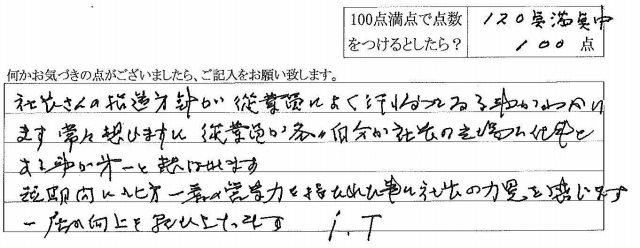 100点満点で点数
をつけるとしたら?
120点満点中
100点
何かお気づきの点がございましたら、ご記入をお願い致します。
社長さんの指導方針が従業員によく行わたつてゐる事がわかり
ます 常々想いますに 従業員が各々自分が社長の立場で仕事を
する事が第一と想はれます
短期内に北方一番の営業力を持たれた事に社長の力量を感じます
一層の向上を
I.T